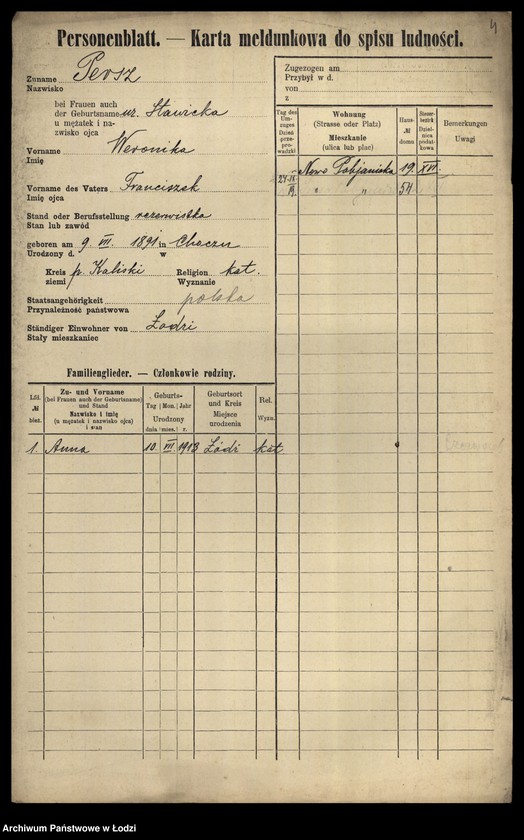 4
Personenblatt. — Karta meldunkowa do spisu ludności.
Zuname Persz
Nazwisko
bei Frauen auch
der Geburtsname ur. Stawicka
u mężatek i na-
zwisko ojca
Vorname Weronika
Imię
Vorname des Vaters Franciszek
Imię ojca
Stand oder Berufsstellung rezerwistka
Stan lub zawód
geboren am 9. VII. 1891 in Choczu
Urodzony d. w
Kreis p. Kaliski Religion kat.
ziemi Wyznanie
Staatsangehörigkeit polska
Przynależność państwowa
Ständiger Einwohner von Łodzi
Stały mieszkaniec
Familienglieder. — Członkowie rodziny.
Lfd. № bież.
Zu- und Vorname (bei Frauen auch der Geburtsname) und Stand Nazwisko i imię (u mężatek i nazwisko ojca) i stan
Geburts- Tag | Mon. | Jahr Urodzony dnia | mies. | r.
Geburtsort und Kreis Miejsce urodzenia
Rel. Wyzn.
1. Anna 10. VII. 1913 Łódź kat
Zugezogen am
Przybył w d.
von
z
Tag des Um-zuges Dzień prze-prowadzki
Wohnung (Strasse oder Platz) Mieszkanie (ulica lub plac)
Haus- № domu
Steuer-bezirk Dzielnica podat-kowa
Bemerkungen Uwagi
Nowo Pabjanicka 19. XVI.
24.IX 19. " " 54
Archiwum Państwowe w Łodzi